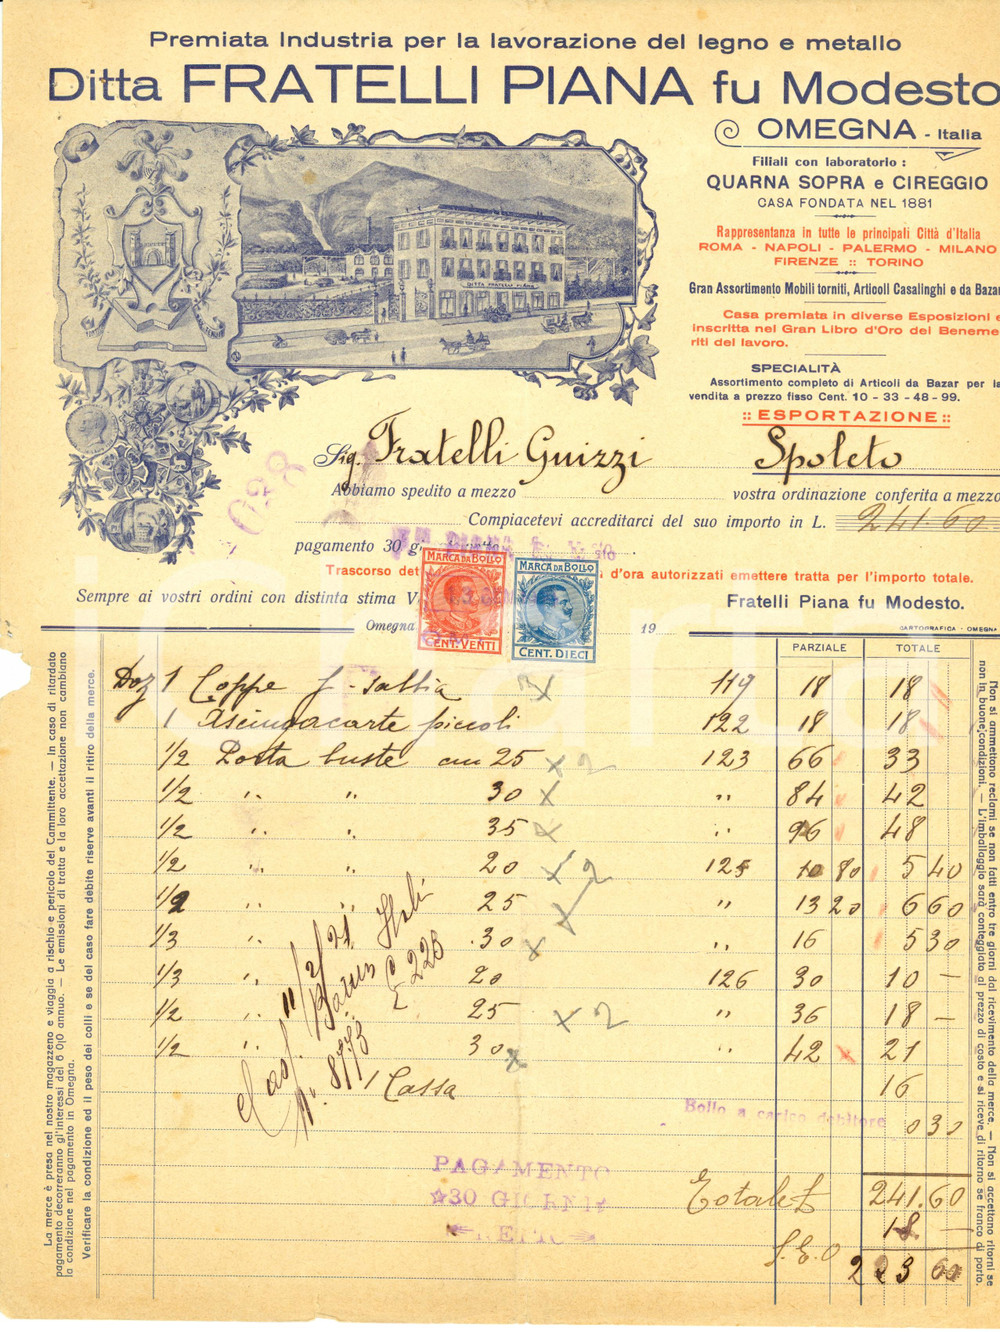 Premiata Industria per la lavorazione del legno e metallo
Ditta FRATELLI PIANA fu Modesto
OMEGNA - Italia
Filiali con laboratorio :
QUARNA SOPRA e CIREGGIO
CASA FONDATA NEL 1881
Rappresentanza in tutte le principali Città d'Italia
ROMA - NAPOLI - PALERMO - MILANO
FIRENZE :: TORINO
Gran Assortimento Mobili torniti, Articoli Casalinghi e da Bazar
Casa premiata in diverse Esposizioni e
inscritta nel Gran Libro d'Oro dei Beneme-
riti del lavoro.
SPECIALITÀ
Assortimento completo di Articoli da Bazar per la
vendita a prezzo fisso Cent. 10 - 33 - 48 - 99.
:: ESPORTAZIONE ::
DITTA FRATELLI PIANA
Sig. Fratelli Guizzi Spoleto
Abbiamo spedito a mezzo vostra ordinazione conferita a mezzo
Compiacetevi accreditarci del suo importo in L. 241.60
pagamento 30 g
Trascorso det d'ora autorizzati emettere tratta per l'importo totale.
Sempre ai vostri ordini con distinta stima V Fratelli Piana fu Modesto.
Omegna 19
CARTOGRAFICA - OMEGNA
MARCA DA BOLLO
CENT. VENTI
MARCA DA BOLLO
CENT. DIECI
PARZIALE TOTALE
Doz 1 Coppe f. sabbia 119 18 18
1 Asciugacarte piccoli 122 18 18
1/2 Porta buste cm 25 123 66 33
1/2 " " 30 " 84 42
1/2 35 " 96 48
1/2 " " 20 125 10 80 5 40
1/2 " " 25 " 13 20 6 60
1/3 " 30 " 16 5 30
1/3 " 20 126 30 10 -
1/2 " 25 " 36 18 -
1/2 " 30 " 42 21
1 Cassa 16
Bollo a carico debitore 0 30
Totale £ 241.60
18 -
S.E.O 223 60
11/2/21
N. 8773
£ 223
PAGAMENTO
30 GIORNI
NETTO
La merce è presa nel nostro magazzeno e viaggia a rischio e pericolo del Cammittente. — In caso di ritardato
pagamento decorreranno gl'interessi del 6 0|0 annuo. — Le emissioni di tratta e la loro accettazione non cambiano
la condizione nel pagamento in Omegna.
Verificare la condizione ed il peso dei colli e se del caso fare debite riserve avanti il ritiro della merce.
Non si ammettono reclami se non fatti entro tre giorni dal ricevimento della merce. — Non si accettano ritorni se
non in buone condizioni. — L'imballaggio sarà conteggiato al prezzo di costo e si riceve di ritorno se franco di porto.